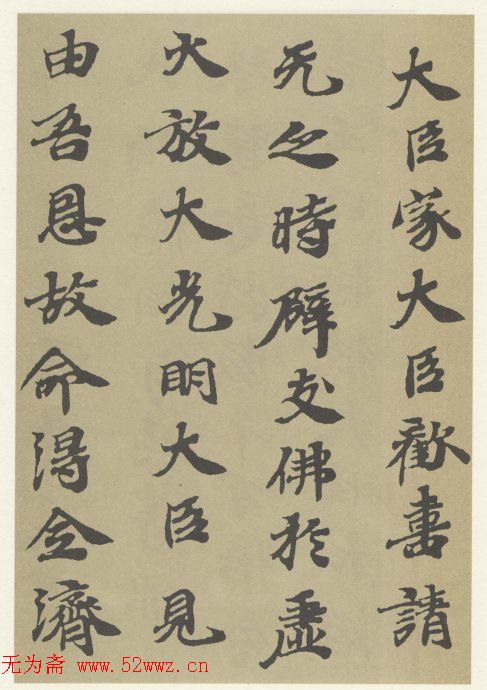 大臣家大臣歡喜請
无之時辟支佛於虛
火放大光明大臣見
由吾恩故命得全濟
无为斋 www.52wwz.cn